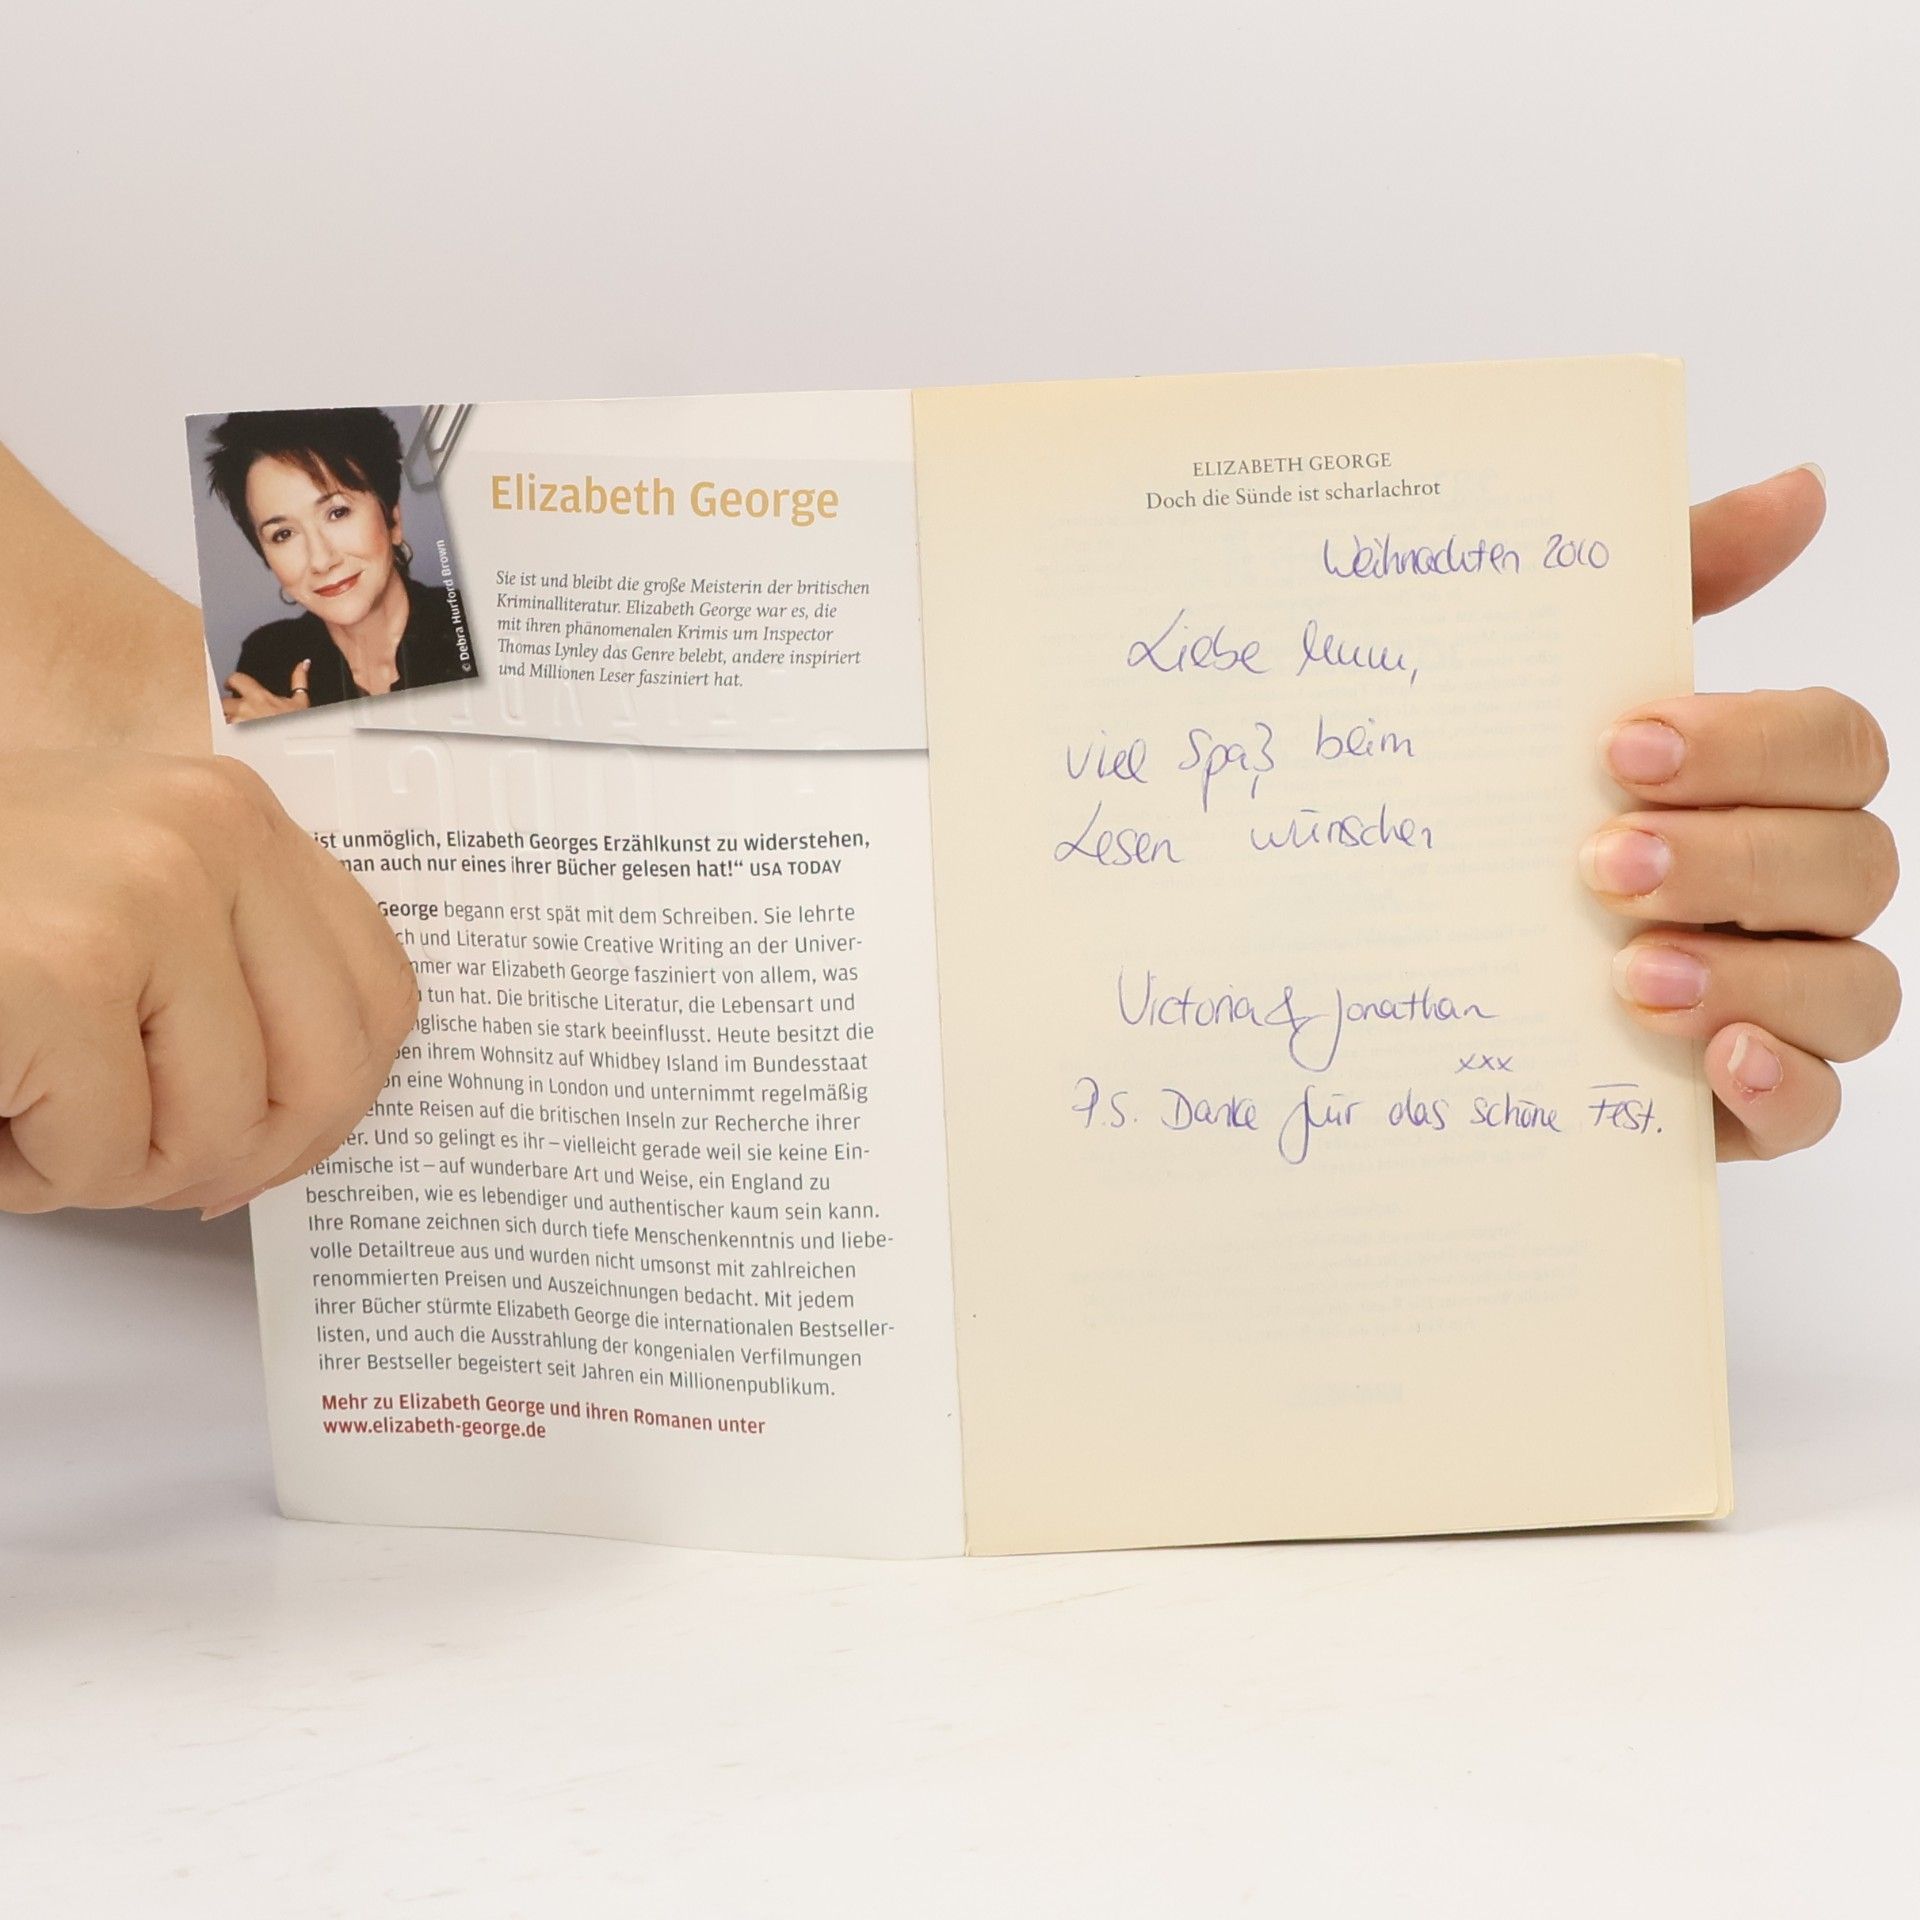 Elizabeth George
© Debra Hurford Brown
Sie ist und bleibt die große Meisterin der britischen
Kriminalliteratur. Elizabeth George war es, die
mit ihren phänomenalen Krimis um Inspector
Thomas Lynley das Genre belebt, andere inspiriert
und Millionen Leser fasziniert hat.
ist unmöglich, Elizabeth Georges Erzählkunst zu widerstehen,
man auch nur eines ihrer Bücher gelesen hat!“ USA TODAY
George begann erst spät mit dem Schreiben. Sie lehrte
und Literatur sowie Creative Writing an der Univer-
war Elizabeth George fasziniert von allem, was
tun hat. Die britische Literatur, die Lebensart und
haben sie stark beeinflusst. Heute besitzt die
ihrem Wohnsitz auf Whidbey Island im Bundesstaat
eine Wohnung in London und unternimmt regelmäßig
Reisen auf die britischen Inseln zur Recherche ihrer
Und so gelingt es ihr – vielleicht gerade weil sie keine Ein-
heimische ist – auf wunderbare Art und Weise, ein England zu
beschreiben, wie es lebendiger und authentischer kaum sein kann.
Ihre Romane zeichnen sich durch tiefe Menschenkenntnis und liebe-
volle Detailtreue aus und wurden nicht umsonst mit zahlreichen
renommierten Preisen und Auszeichnungen bedacht. Mit jedem
ihrer Bücher stürmte Elizabeth George die internationalen Bestseller-
listen, und auch die Ausstrahlung der kongenialen Verfilmungen
ihrer Bestseller begeistert seit Jahren ein Millionenpublikum.
Mehr zu Elizabeth George und ihren Romanen unter
www.elizabeth-george.de
ELIZABETH GEORGE
Doch die Sünde ist scharlachrot
Weihnachten 2010
Liebe Mum,
viel Spaß beim
Lesen wünschen
Victoria & Jonathan
xxx
P.S. Danke für das schöne Fest.